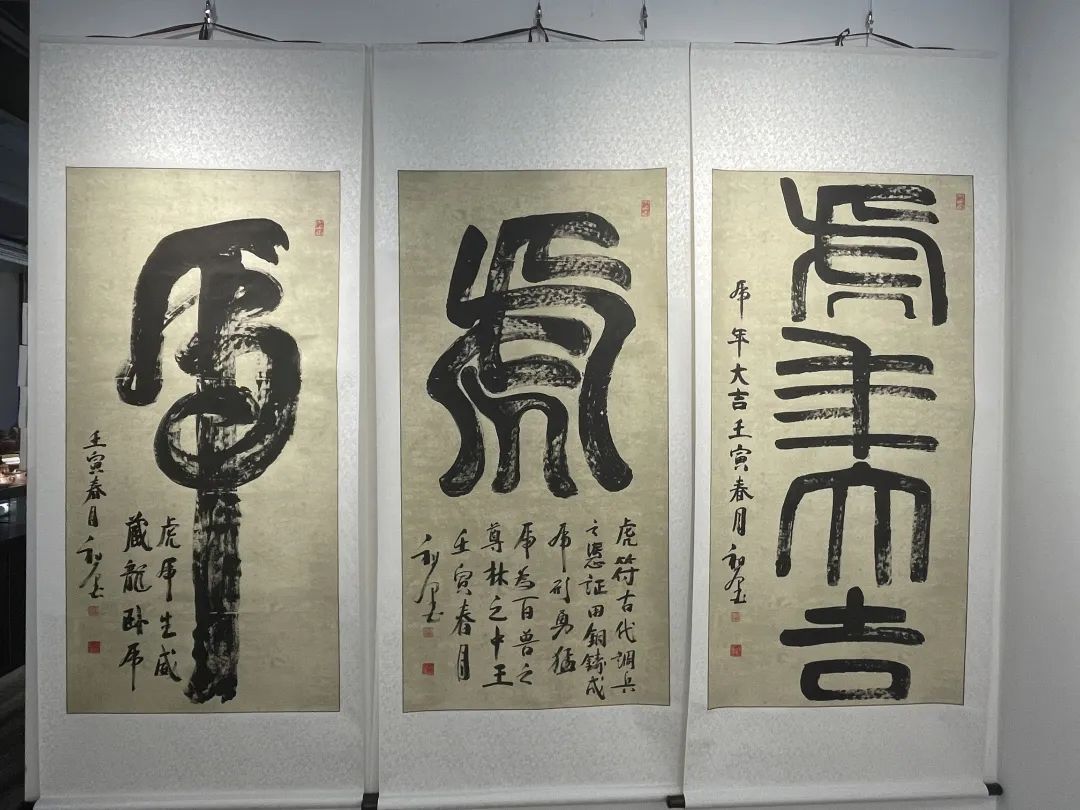 虎
虎虎生威
藏龍卧虎
壬寅春月
虎
虎符古代調兵
之憑証由銅鑄成
虎形勇猛
虎為百兽之
尊林之中王
壬寅春月
虎年大吉
虎年大吉壬寅春月